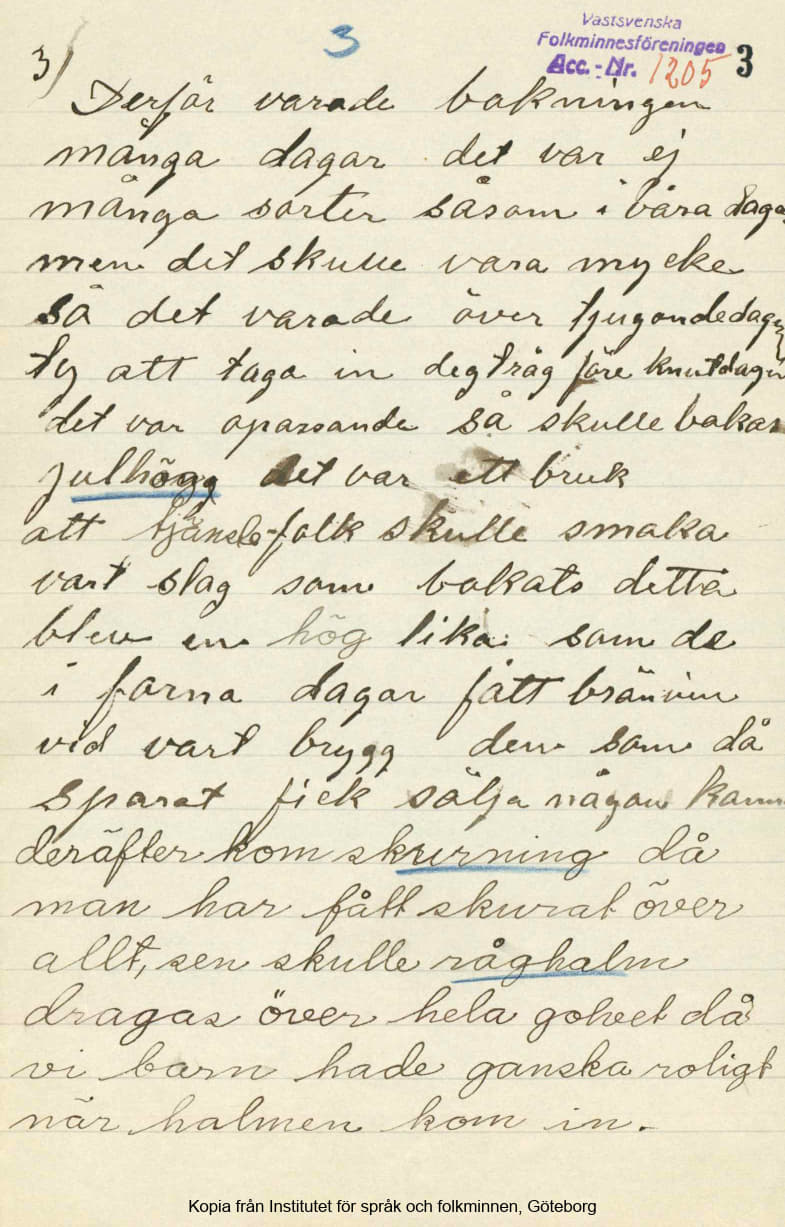 3
Västsvenska
Folkminnesföreningen
Acc.-Nr. 1205
3
3)
Derför varade bakningen
många dagar det var ej
många sorter såsom i våra daga
men det skulle vara mycke
så det varade över tjugondedagen
ty att taga in degtråg före knutdagen
det var opassande så skulle bakas
julhögg det var ett bruk
att tjänste-folk skulle smaka
vart slag som bakats detta
blev en hög lika som de
i forna dagar fått bränvin
vid vart brygg den som då
sparat fick sälja någon kann
deräfter kom skurning då
man har fått skurat över
allt, sen skulle råghalm
dragas över hela golvet då
vi barn hade ganska roligt
när halmen kom in.
Kopia från Institutet för språk och folkminnen, Göteborg